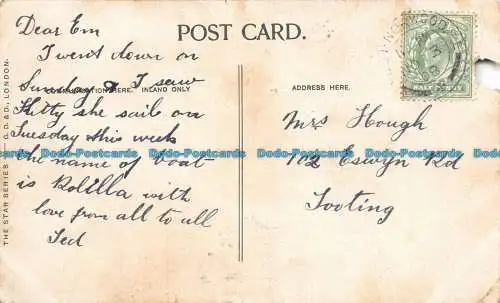 POST CARD.
Dear Em
I went down on
Sunday & I saw
Kitty she sails on
Tuesday this week
the name of boat
is Rolilla with
love from all to all
Ted
INLAND ONLY
ADDRESS HERE.
Mrs Hough
102 Eswyn Rd
Tooting
THE STAR SERIES
G. D. & D., LONDON.
HALF PENNY
Dodo-Postcards Dodo-Postcards Dodo-Postcards Dodo-Postcards